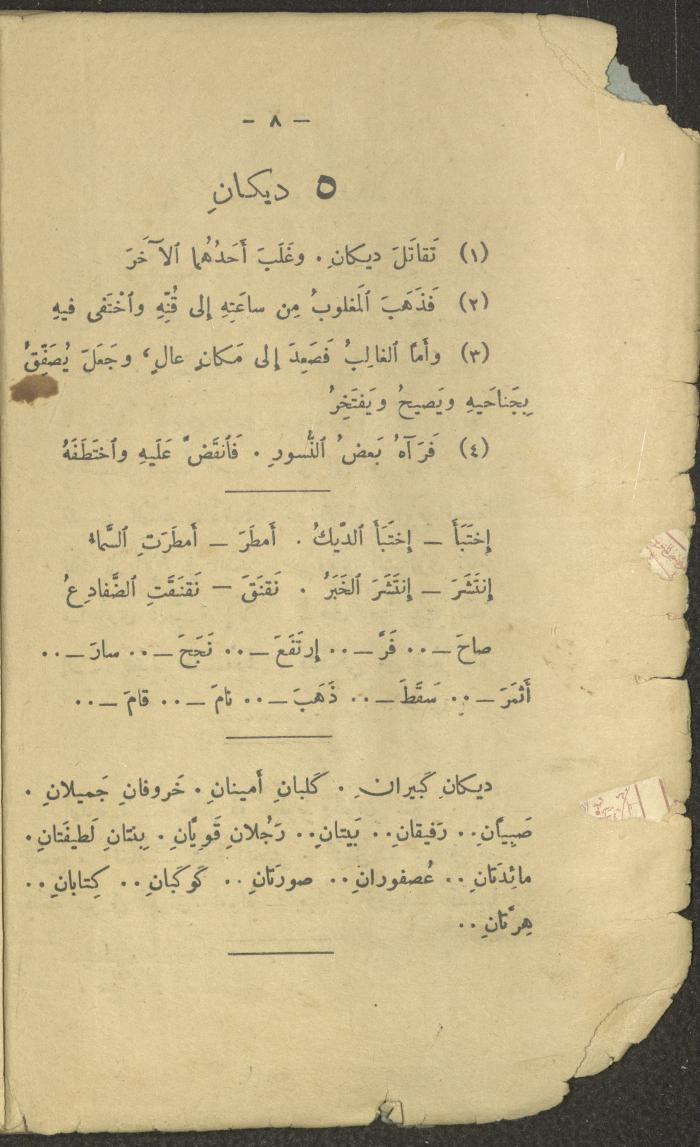 — ٨ —
٥ ديكانِ
(١) تَقاتَلَ ديكانِ . وغَلَبَ أَحَدُهُما ٱلآخَرَ
(٢) فَذَهَبَ ٱلمَغلوبُ مِن ساعَتِهِ إلى قُنِّهِ وٱخْتَفى فيهِ
(٣) وأَمّا ٱلغالِبُ فَصَعِدَ إلى مَكانٍ عالٍ، وجَعَلَ يُصَفِّقُ
بِجَناحَيهِ ويَصيحُ ويَفتَخِرُ
(٤) فَرَآهُ بَعضُ ٱلنُّسورِ . فَٱنقَضَّ عَلَيهِ وٱختَطَفَهُ
إختَبَأَ — إختَبَأَ ٱلدّيكُ . أَمطَرَ — أَمطَرَتِ ٱلسَّماءُ
إنتَشَرَ — إنتَشَرَ ٱلخَبَرُ . نَقنَقَ — نَقنَقَتِ ٱلضَّفادِعُ
صاحَ — .. فَرَّ — .. إرتَفَعَ — .. نَجَحَ — .. سارَ — ..
أَثمَرَ — .. سَقَطَ — .. ذَهَبَ — .. نامَ — .. قامَ — ..
ديكانِ كَبيرانِ . كَلبانِ أَمينانِ . خَروفانِ جَميلانِ .
صَبِيّانِ .. رَفيقانِ .. بَيتانِ .. رَجُلانِ قَوِيّانِ . بِنتانِ لَطيفَتانِ .
مائِدَتانِ .. عُصفورانِ .. صورَتانِ .. كَوكَبانِ .. كِتابانِ ..
هِرَّتانِ ..